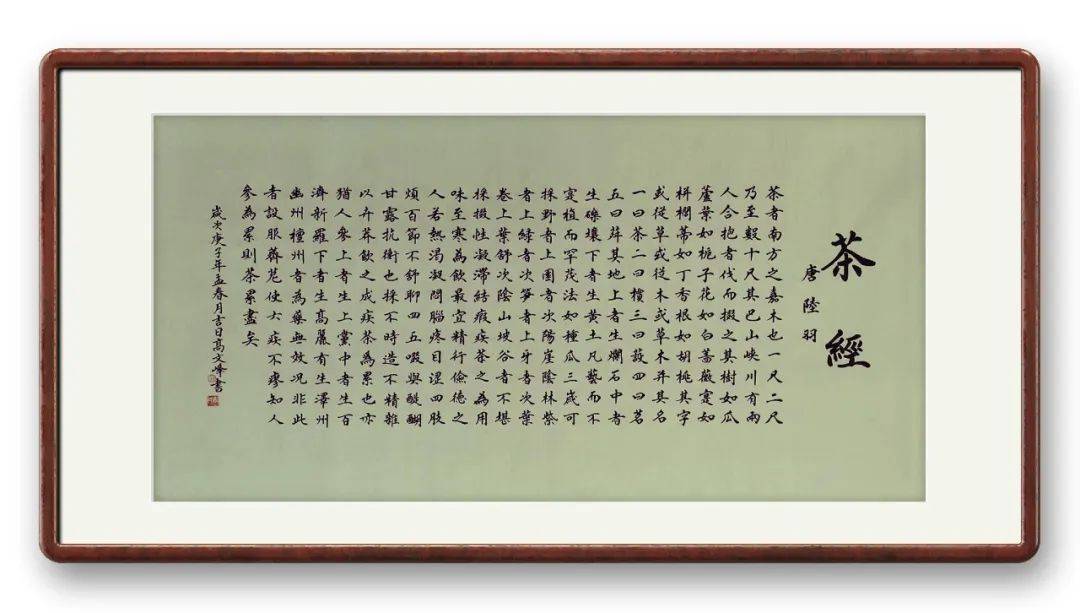 茶經
唐陸羽
茶者南方之嘉木也一尺二尺
乃至數十尺其巴山峽川有兩
人合抱者伐而掇之其樹如瓜
蘆葉如梔子花如白薔薇實如
栟櫚蒂如丁香根如胡桃其字
或從草或從木或草木并其名
一曰茶二曰檟三曰蔎四曰茗
五曰荈其地上者生爛石中者
生礫壤下者生黃土凡藝而不
寔植而罕茂法如種瓜三歲可
採野者上園者次陽崖陰林紫
者上綠者次笋者上牙者次葉
卷上葉舒次陰山坡谷者不堪
採掇性凝滯結瘕疾茶之為用
味至寒為飲最宜精行儉德之
人若熱渴凝悶腦疼目澀四肢
煩百節不舒聊四五啜與醍醐
甘露抗衡也採不時造不精雜
以卉莽飲之成疾茶為累也亦
猶人參上者生上黨中者生百
濟新羅下者生高麗有生澤州
幽州檀州者為藥無效況非此
者設服薺苨使六疾不瘳知人
參為累則茶累盡矣
歲次庚子年孟春月吉日高文峰書